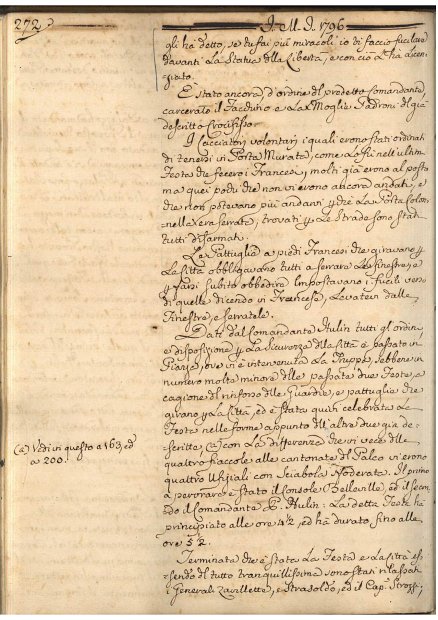 272
I. M. I. 1796
gli hà detto, se tu fai più miracoli io ti faccio fucilare
davanti la Statua della Libertà, e con ciò l'hà licen-
ziato.
È stato ancora d'ordine del predetto Comandante
carcerato il Facchino e la Moglie Padroni del già
descritto Crocifisso.
I Cacciatori volontarj i quali erono stati ordinati
di tenersi in Porta Murata, come la fù nell'ultima
Festa che fecero i Francesi, molti già erono al posto
ma quei pochi che non vi erono ancora andati, e
che non potevano più andarvi p che la Porta Colon-
nella era serrata, trovati p le strade sono stati
tutti disarmati.
Le Pattuglie a piedi Francesi che giravano p
la Città obbligavano tutti a serrare le finestre, e
p farsi subito obbedire impostavano i fucili verso
di quelle dicendo in Francese, Levatevi dalle
Finestre, e serratele.
Dati dal Comandante Hulin tutti gli ordini
e disposizioni p la sicurezza della Città è passato in
Piazza, ove vi è intervenuta la Truppa, sebbene in
numero molto minore delle passate due Feste, a
cagione del rinforzo delle Guardie, e pattuglie che
girano p la Città, ed è stata quivi celebrata la
Festa nelle forme appunto dell'altre due già de-
scritte, (a) con la differenza che in vece delle
quattro fiaccole alle cantonate del Palco vi erono
quattro Uffiziali con Sciabola sfoderata. Il primo
a perorare è stato il Console Belleville, ed il secon-
do il Comandante Hulin: la detta Festa hà
principiato alle ore 4 1/2, ed hà durato fino alle
ore 5 1/2.
Terminata che è stata la Festa e la Città es-
sendo del tutto tranquillissima sono stati rilassati
i Generali Lavillette, e Strasoldo, ed il Cap. Strozzi,
(a) Vedi in questo a 163, ed
a 200.